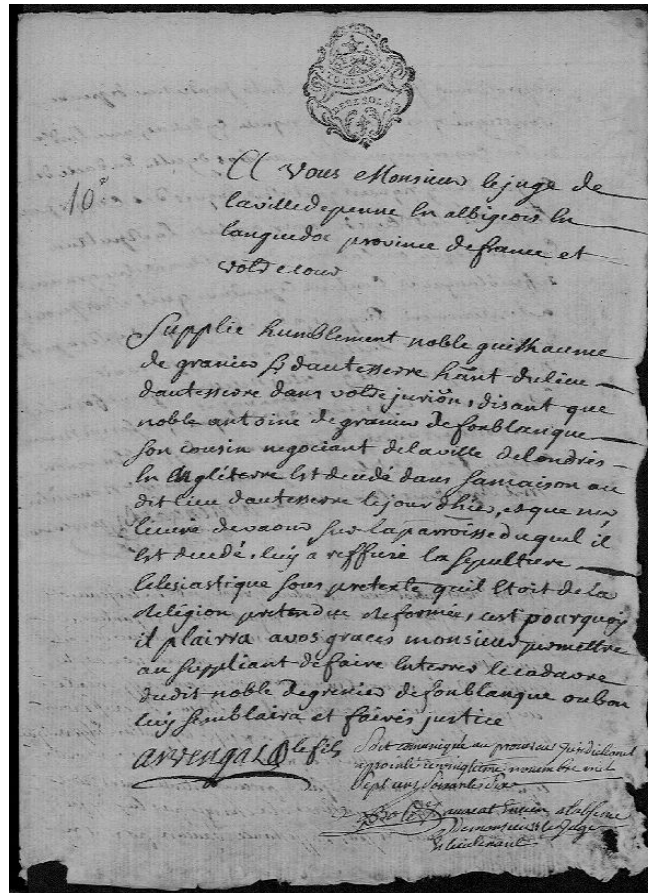 10e
A Vous Monsieur le juge de
la ville de penne en albigeois en
languedoc province de france et
votre cour
Supplie humblement noble guilhaume
de grenier sr dautesserre hant du lieu
dautesserre dans votre jurion, disant que
noble antoine de grenier de fonblanque
son cousin negociant de la ville de londres
en Angléterre est decedé dans sa maison au
dit lieu dautesserre le jour dhier, et que mr
le curé de vaour sur la parroisse duquel il
est decedé luy a reffuzé la sepulture
eclesiastique sous pretexte quil etoit de la
religion pretendue reformée, cest pourquoy
il plairra a vos graces monsieur permettre
au suppliant de faire enterrer le cadavre
dudit noble de grenier de fonblanque ou bon
luy semblaira et faires justice
arvengas le fils
Soit comuniqué au procureur jurisdictionel
appointé ce vingtieme novembre mil
sept cens soixante dix
gradué a labsence
de monsieur le juge
et lieutenant